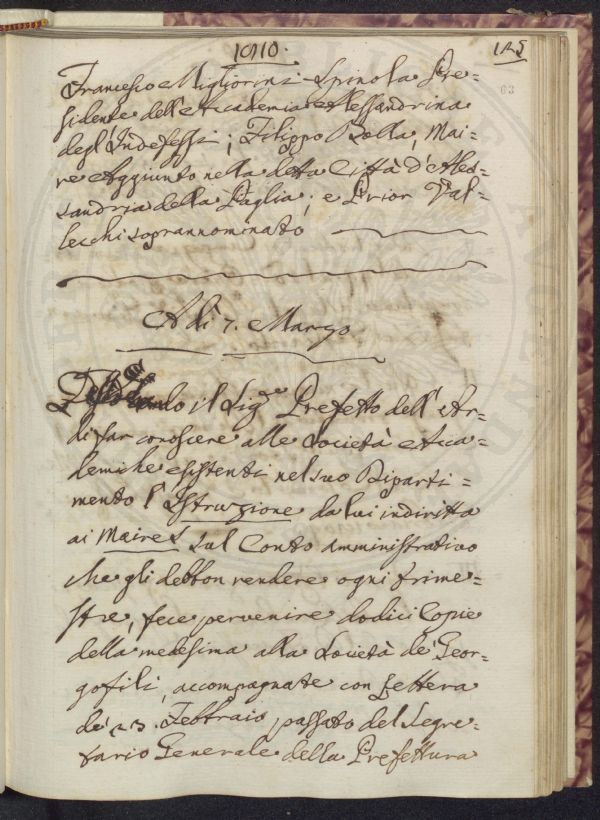 1810. 125
63
Francesco Migliorini Spinola Pre=
sidente dell'Accademia Alessandrina
degl'Indefessi; Filippo Bolla, Mai=
re Aggiunto nella detta Città d'Ales=
sandria della Paglia; e Prior Val=
lecchi soprannominato
A dì 7. Marzo
il Sig.e Prefetto dell'Ar=
di far conoscere alle Società Acca=
demiche esistenti nel suo Diparti=
mento l'Istruzione da lui indiritta
ai Maires sul Conto amministrativo
che gli debbon rendere ogni trime=
stre, fece pervenire dodici Copie
della medesima alla Società de' Geor=
gofili, accompagnate con Lettera
de' 23. Febbraio passato del Segre=
tario Generale della Prefettura